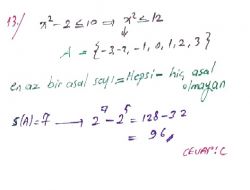 13/ x² - 2 ≤ 10 ⇒ x² ≤ 12
A = {-3, -2, -1, 0, 1, 2, 3}
en az bir asal sayı = Hepsi - hiç asal
olmayan
S(A) = 7 → 2⁷ - 2⁵ = 128 - 32
= 96
CEVAP: C